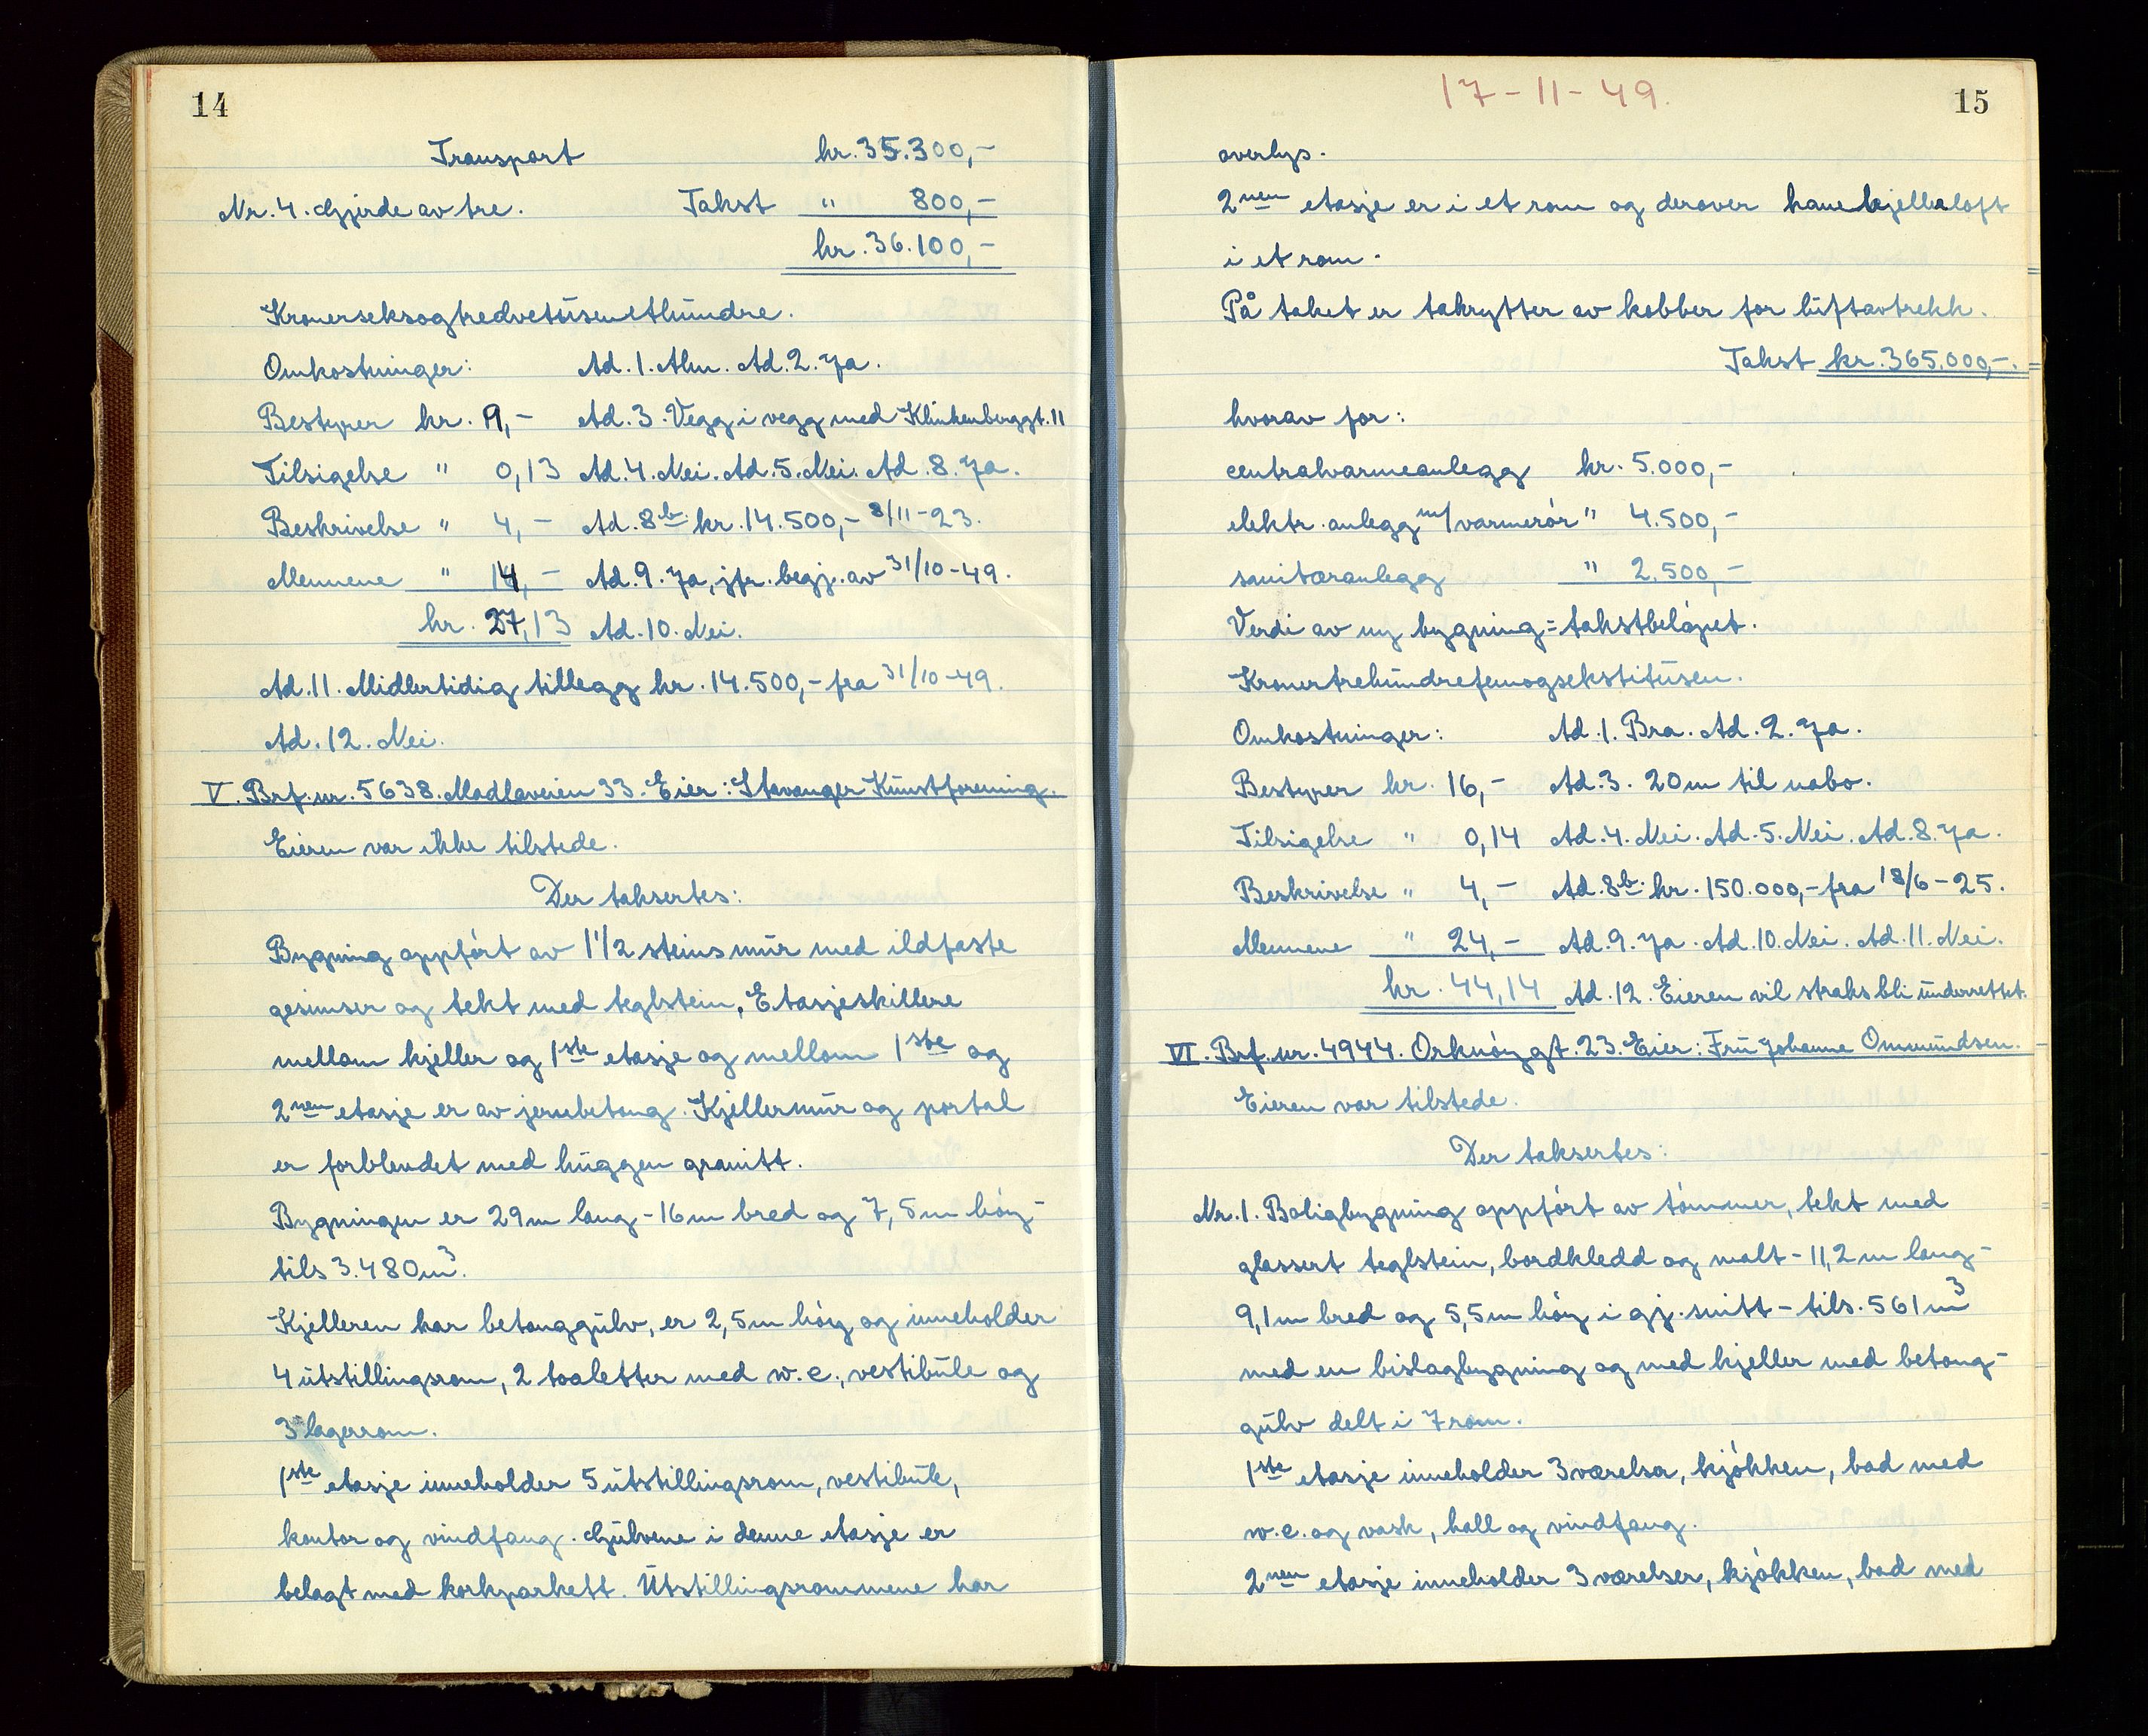 14
Transport kr. 35.300,-
Nr. 4. Gjerde av tre. Takst " 800,-
kr. 36.100,-
Kronerseksogtredvetusenethundre.
Omkostninger: Ad. 1. Alm. Ad. 2. Ja.
Bestyrer kr. 9,- Ad. 3. Vegg i vegg med Klinkenberggt. 11
Tilsigelse " 0,13 Ad. 4. Nei. Ad. 5. Nei. Ad. 8. Ja.
Beskrivelse " 4,- Ad. 8b. kr. 14.500,- 8/11-23.
Mennene " 14,- Ad. 9. Ja, jfr. begj. av 31/10-49.
kr. 27,13 Ad. 10. Nei.
Ad. 11. Midlertidig tillegg kr. 14.500,- fra 31/10-49.
Ad. 12. Nei.
V. Brf. nr. 5638. Madlaveien 33. Eier: Stavanger Kunstforening.
Eieren var ikke tilstede.
Der taksertes:
Bygning oppført av 1 1/2 steins mur med ildfaste
gesimser og tekt med teglstein, Etasjeskillere
mellom kjeller og 1ste etasje og mellom 1ste og
2nen etasje er av jernbetong. Kjellermur og portal
er forblendet med huggen granitt.
Bygningen er 29m lang - 16m bred og 7,5m høy -
tils 3.480m3.
Kjelleren har betonggulv, er 2,5m høy og inneholder
4 utstillingsrom, 2 toaletter med w.c., vestibule og
3 lagerrom.
1ste etasje inneholder 5 utstillingsrom, vestibule,
kontor og vindfang. Gulvene i denne etasje er
belagt med korkparkett. Utstillingsrommene har
17-11-49.
15
overlys.
2nen etasje er i et rom og derover hanekjelleloft
i et rom.
På taket er takrytter av kobber for luftavtrekk.
Takst kr. 365.000,-.
hvorav for:
centralvarmeanlegg kr. 5.000,-
elektr. anlegg m/varmerør " 4.500,-
sanitæranlegg " 2.500,-
Verdi av ny bygning = takstbeløpet.
Kronertrehundrefemogsekstitusen.
Omkostninger: Ad. 1. Bra. Ad. 2. Ja.
Bestyrer kr. 16,- Ad. 3. 20m til nabo.
Tilsigelse " 0,14 Ad. 4. Nei. Ad. 5. Nei. Ad. 8. Ja.
Beskrivelse " 4,- Ad. 8b. kr. 150.000,- fra 18/6-25.
Mennene " 24,- Ad. 9. Ja. Ad. 10. Nei. Ad. 11. Nei.
kr. 44,14 Ad. 12. Eieren vil straks bli underrettet.
VI. Brf. nr. 4944. Orknøygt. 23. Eier: Fru Johanne Ommundsen.
Eieren var tilstede.
Der taksertes:
Nr. 1. Boligbygning oppført av tømmer, tekt med
glassert teglstein, bordkledd og malt - 11,2m lang -
9,1m bred og 5,5m høy i gj. snitt - tils. 561m3
med en bislagbygning og med kjeller med betong-
gulv delt i 7 rom.
1ste etasje inneholder 3 værelser, kjøkken, bad med
w.c. og vask, hall og vindfang.
2nen etasje inneholder 3 værelser, kjøkken, bad med